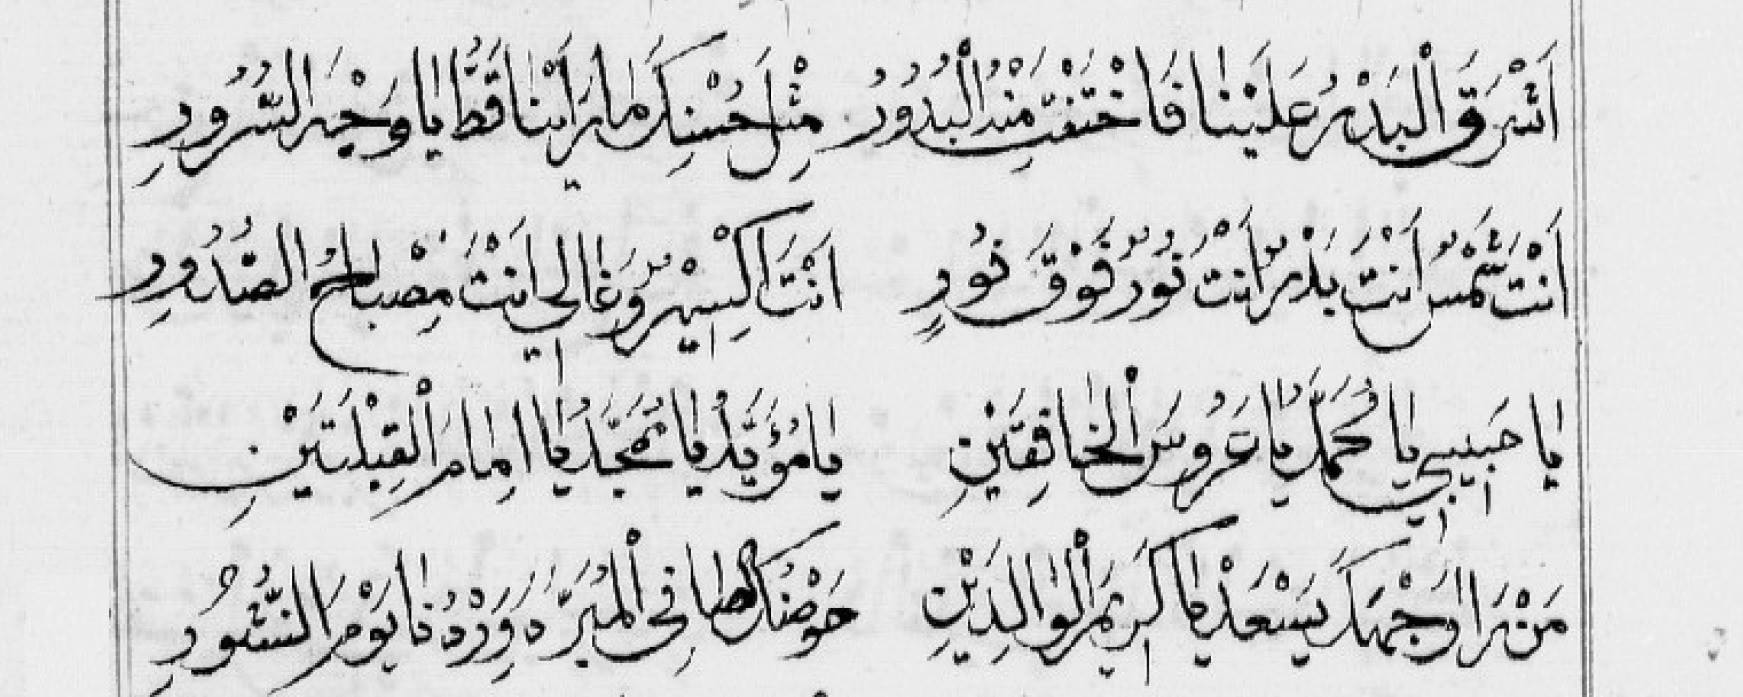 اَشْرَقَ الْبَدْرُ عَلَيْنَا فَاخْتَفَتْ مِنْهُ الْبُدُوْرُ مِثْلَ حُسْنِكَ مَا رَاَيْنَا قَطُّ يَا وَجْهَ السُّرُوْرِ
اَنْتَ شَمْسٌ اَنْتَ بَدْرٌ اَنْتَ نُوْرٌ فَوْقَ نُوْرٍ اَنْتَ اِكْسِيْرٌ وَغَالِي اَنْتَ مِصْبَاحُ الصُّدُوْرِ
يَا حَبِيْبِي يَا مُحَمَّدُ يَا عَرُوْسَ الْخَافِقَيْنِ يَا مُؤَيَّدُ يَا مُمَجَّدُ يَا اِمَامَ الْقِبْلَتَيْنِ
مَنْ رَاَا وَجْهَكَ يَسْعَدْ يَا كَرِيْمَ الْوَالِدَيْنِ حَوْضُكَ الصَّافِى الْمُبَرَّدْ وِرْدُنَا يَوْمَ النُّشُوْرِ